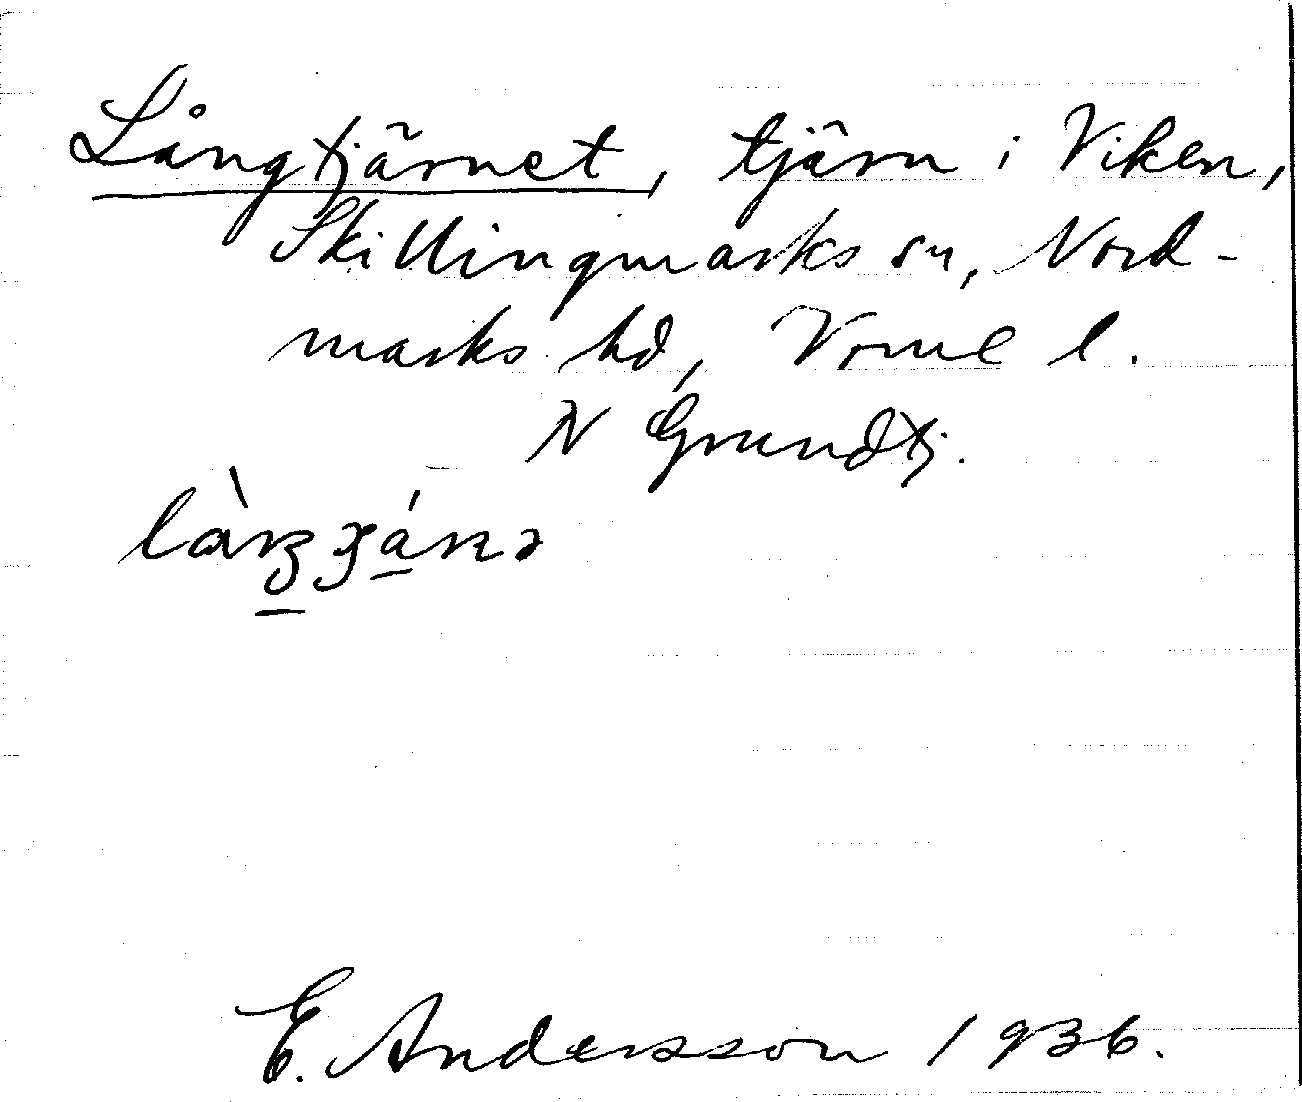 Långtjärnet, tjärn i Viken,
Skillingmarks sn, Nord-
marks hd, Vrml l.
N Grundtj.
E. Andersson 1936.